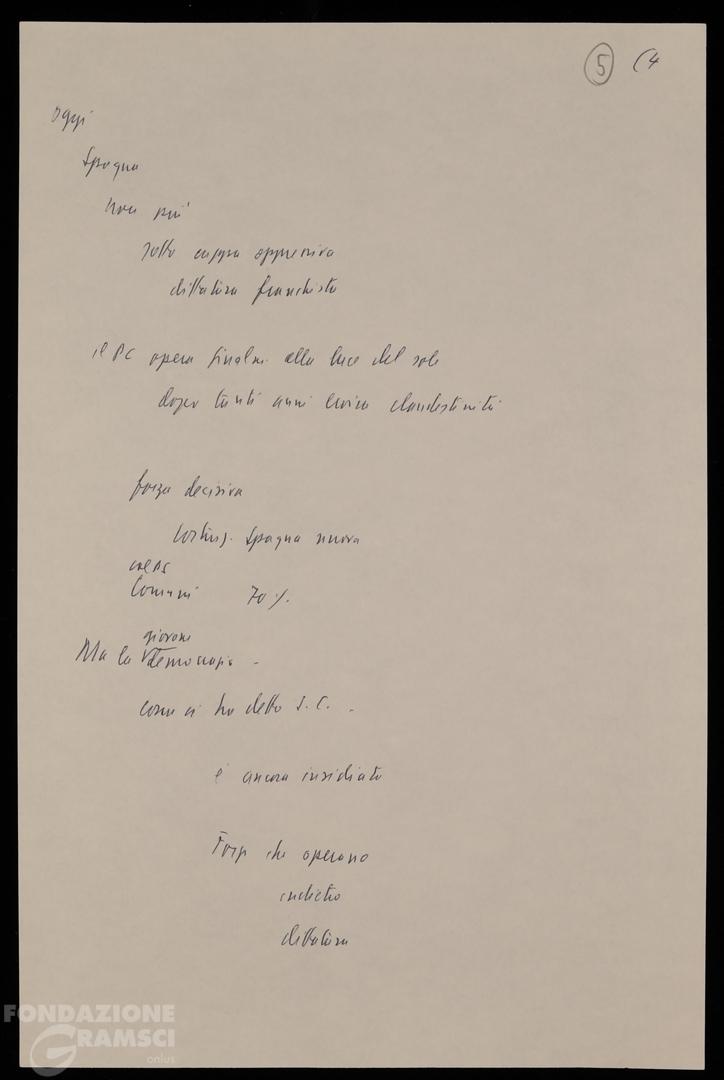 5 (4
oggi
Spagna
non più
sotto cappa oppressiva
dittatura franchista
il PC opera finalm. alla luce del sole
dopo tanti anni eroica clandestinità
forza decisiva
costruz. Spagna nuova
col PS
Comuni 70%
giovane
Ma la democrazia -
come ci ha detto S. C. -
è ancora insidiata
Forze che operano
indietro
dittatura
FONDAZIONE
GRAMSCI
onlus